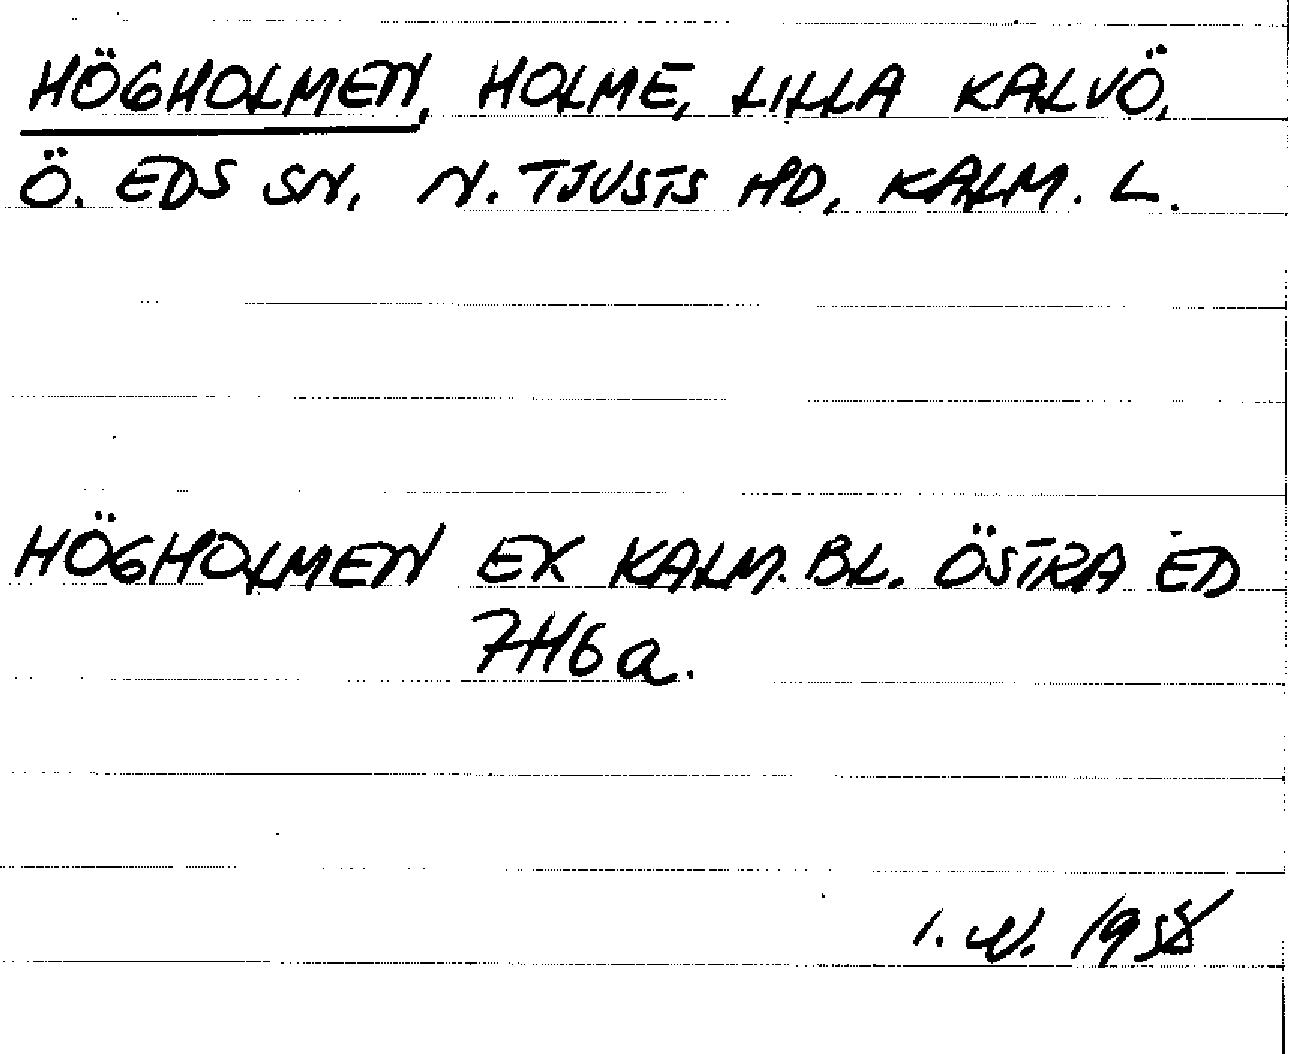 HÖGHOLMEN, HOLME, LILLA KALVÖ,
Ö. EDS SN, N. TJUSTS HD, KALM. L.
HÖGHOLMEN EK KALM. BL. ÖSTRA ED
7H6a.